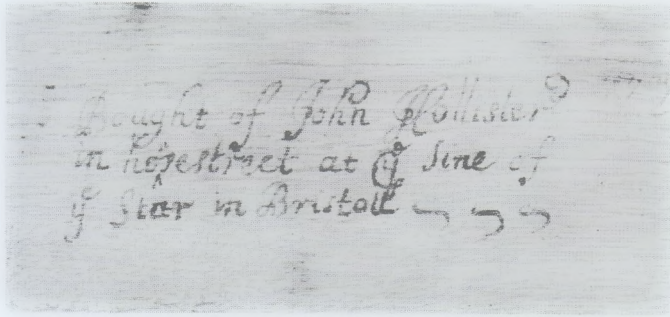 Bought of John Hollister
in horsestreet at ye sine of
ye Star in Bristoll